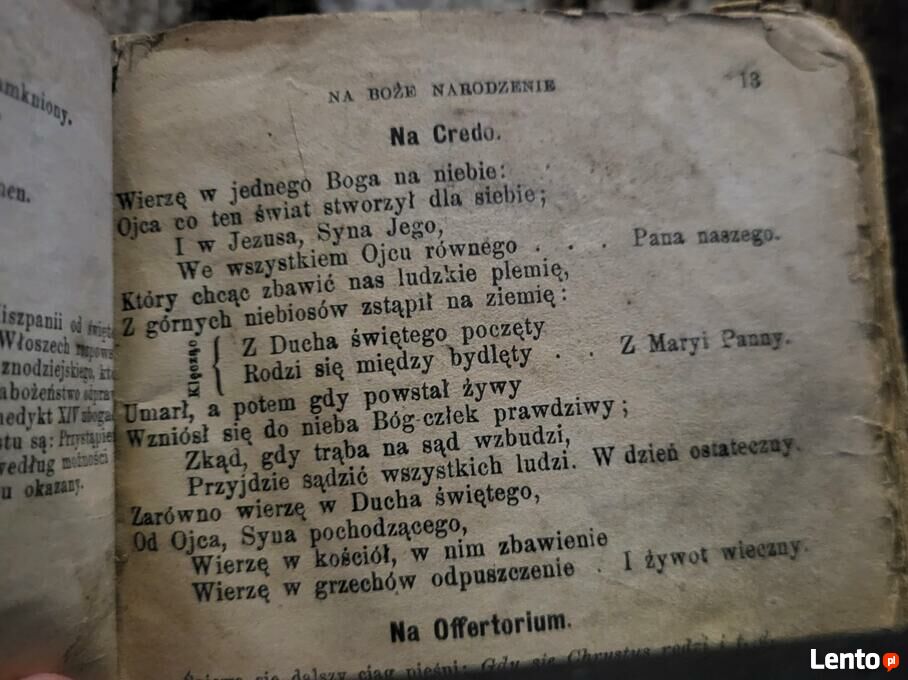 amkniony,
men.
iszpanii od święte
Włoszech rozpows
znodziejskiego, któ
abożeństwo odpraw
nedykt XIV ubogac
stu są: Przystąpien
według możności
u okazany.
NA BOŻE NARODZENIE 13
Na Credo.
Wierzę w jednego Boga na niebie:
Ojca co ten świat stworzył dla siebie;
I w Jezusa, Syna Jego,
We wszystkiem Ojcu równego . . . Pana naszego.
Który chcąc zbawić nas ludzkie plemię,
Z górnych niebiosów zstąpił na ziemię:
Klęcząc
Z Ducha świętego poczęty
Rodzi się między bydlęty . . Z Maryi Panny.
Umarł, a potem gdy powstał żywy
Wzniósł się do nieba Bóg-człek prawdziwy;
Zkąd, gdy trąba na sąd wzbudzi,
Przyjdzie sądzić wszystkich ludzi. W dzień ostateczny.
Zarówno wierzę w Ducha świętego,
Od Ojca, Syna pochodzącego,
Wierzę w kościół, w nim zbawienie
Wierzę w grzechów odpuszczenie . I żywot wieczny.
Na Offertorium.
się dalszy ciąg pieśni: Gdy się Chrystus rodzi i t. d.
Lento.pl